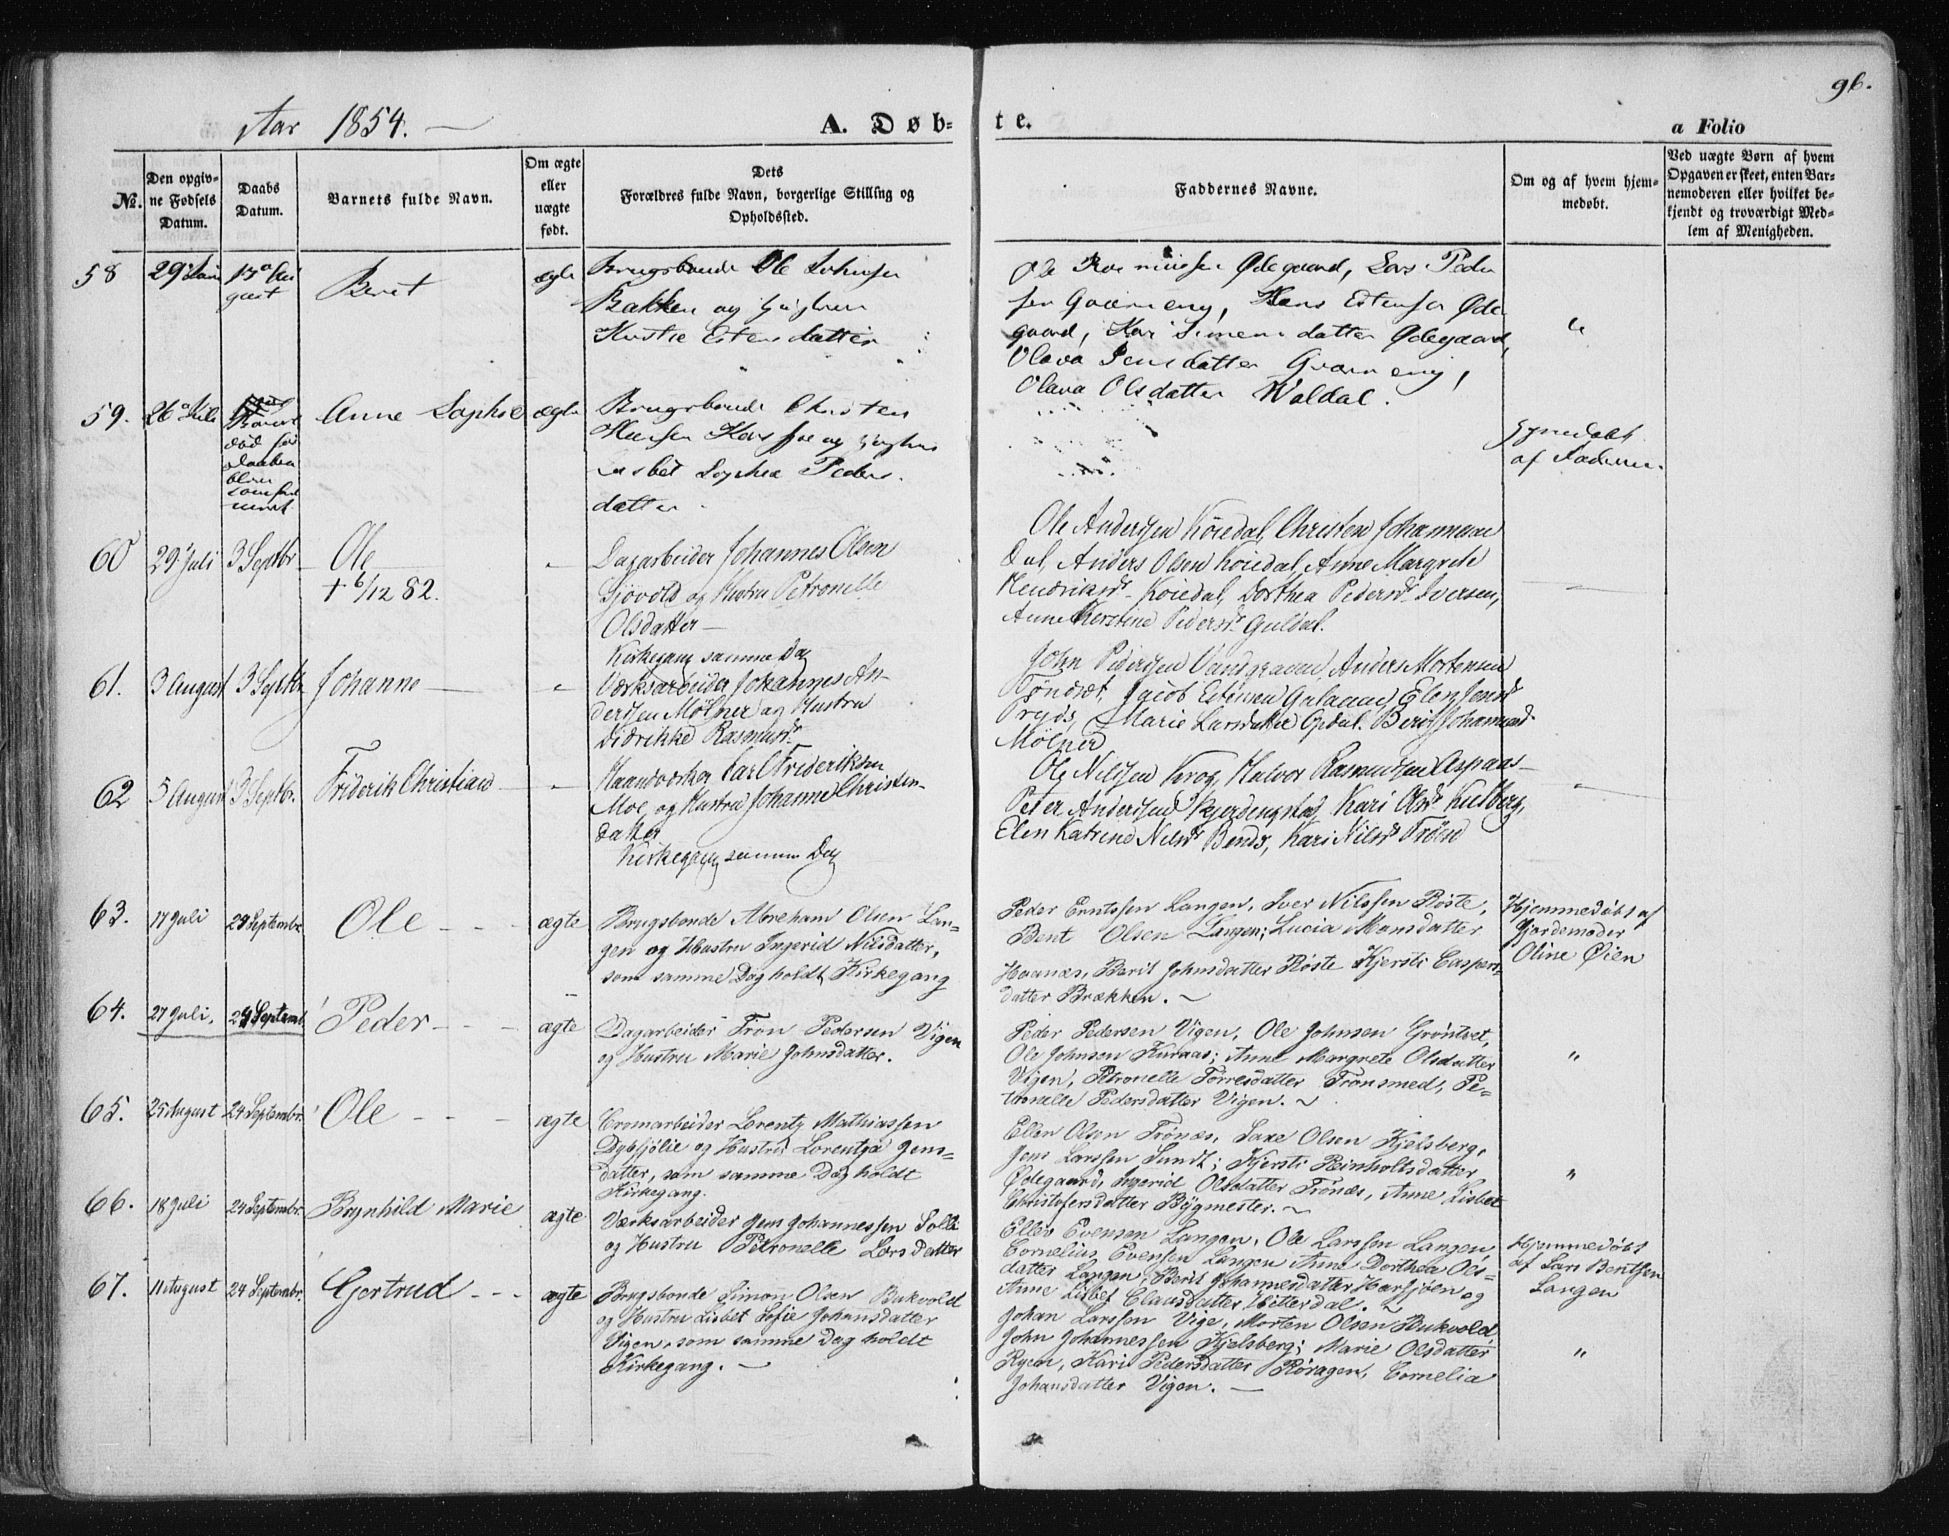 96.
Aar 1854. —
A. Døb-
te.
a Folio
№.
Den opgiv-
ne Fødsels
Datum.
Daabs
Datum.
Barnets fulde Navn.
Om ægte
eller
uægte
født.
Dets
Forældres fulde Navn, borgerlige Stilling og
Opholdssted.
Faddernes Navne.
Om og af hvem hjem-
medøbt.
Ved uægte Børn af hvem
Opgaven er skeet, enten Bar-
nemoderen eller hvilket be-
kjendt og troværdigt Med-
lem af Menigheden.
58
29 Juni
gust
Beret
ægte
Brugsbonde Ole Johnsen
Bakken og
Hustru Estensdatter
Ole Rasmussen Ødegaard, Lars Peder
sen Qværneng, Hans Estensen Øde
gaard, Kari Simensdatter Ødegaard,
Olava Jensdatter Qværneng,
Olava Olsdatter Waldal.
"
59.
26 Juli
Barnet
død før
Daaben
blev
Anne Sophie
ægte
Brugsbonde Christen
Hansen
Lisbet Sophia Peders
datter.
af Faderen.
60
29 Juli
3 Septbr.
Ole
† 6/12 82.
"
Dagarbeider Johannes Olsen
Sjøvold og Hustru Petronelle
Olsdatter —
Kirkegang samme Dag
Ole Andersen Køiedal, Christen Johannesen
Dal, Anders Olsen Køiedal, Anne Margrete
Hendriksdr. Køiedal, Dorthea Pedersdr. Iversen,
Anne Kerstine Pedersdr. Guldal.
61.
3 August
3 Septbr.
Johanne —
"
Værksarbeider Johannes An-
dersen Mølner og Hustru
Didrikke Rasmusdr.
John Pedersen Vandgraven, Anders Mortensen
Tøndset, Jacob Estensen Galaaen, Elen Jensdr
Pryds, Marie Larsdatter Opdal. Berit Johannesd.
Mølner
62
5 August
3 Septbr.
Friderik Christian —
"
Haandværker Carl Frideriksen
Moe, og Hustru Johanne Christen-
datter
Kirkegang samme Dag
Ole Nilsen Krog, Halvor Rasmussen Aspaas —
Peter Andersen Skjerdengstad, Kari Olsdr. Kulberg,
Elen Katrine Nilsdr. Bends, Kari Nilsdr. Trøen
"
63.
17 Juli
24 Septembr.
Ole - - -
ægte
Brugsbonde Abraham Olsen Lan-
gen og Hustru Ingerid Nilsdatter,
som samme Dag holdt Kirkegang
Peder Erntssen Langen, Iver Nilssen Røste,
Bent Olsen Langen; Lucia Monsdatter
Haanæs, Berit Johnsdatter Røste Kjersti Caspers-
datter Brækken. ~
Hjemmedøbt af
Jordemoder
Oline Øien
64.
27 Juli.
24 Septemb.
Peder - - -
ægte
Dagarbeider Tron Pedersen Vigen
og Hustru Marie Johnsdatter.
Peder Pedersen Vigen, Ole Johnsen Grøntvet,
Ole Johnsen Kuraas; Anne Margrete Olsdatter
Vigen, Petronelle Torresdatter Tronsmed, Pe-
tronelle Pedersdatter Vigen. ~
"
65.
25 August
24 Septembr.
Ole - - -
ægte
Cromarbeider Lorentz Mathiassen
Dybsjølie og Hustru Lorentza Jens-
datter, som samme Dag holdt
Kirkegang.
Ellen Olsen Trønæs, Saxe Olsen Kjelsberg,
Jens Larssen Sundt; Kjersti Reinholtsdatter
Ødegaard, Ingerid Olsdatter Trønæs, Anne Lisbet
Christofersdatter Bygmester. ~
"
66.
18 Juli
24 Septembr.
Brynhild Marie
ægte
Værksarbeider Jens Johannessen Solli
og Hustru Petronelle Larsdatter
Ellev Evensen Langen, Ole Larssen Langen,
Cornelius Evensen Langen Anne Dorthea Ols-
datter Langen, Berit Johannesdatter Harsjøen og
Anne Lisbet Clausdatter Hitterdal. ~
Hjemmedøbt
af Lars Bentsen
Langen
67.
11 August
24 Septembr.
Gjertrud - - -
ægte
Brugsbonde Simon Olsen Bukvold
og Hustru Lisbet Sofie Johansdatter
Vigen, som samme Dag holdt
Kirkegang. —
Johan Larssen Vige, Morten Olsen Bukvold,
John Johannessen Kjelsberg; Marie Olsdatter
Ryen, Kari Pedersdatter Røragen, Cornelia
Johansdatter Vigen. —
"